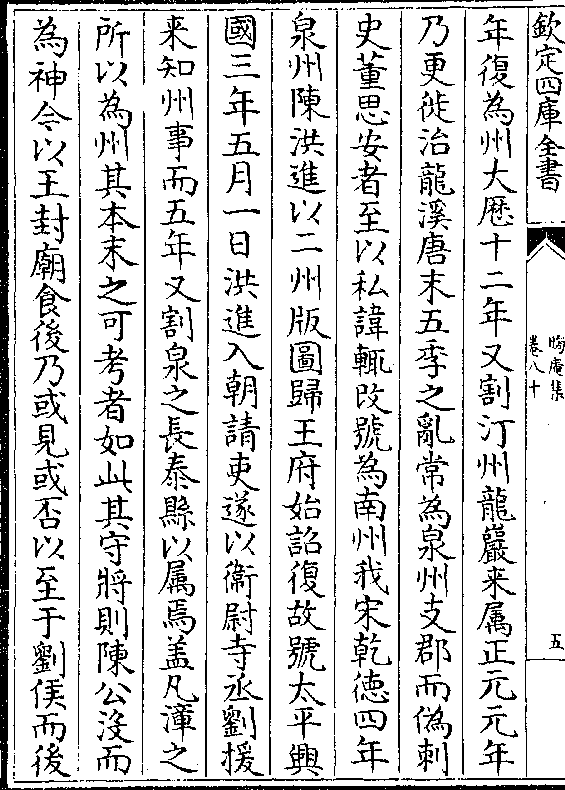 欽定四庫全書
晦庵集
卷八十
五
年復為州大厯十二年又割汀州龍巖来属正元元年
乃更徙治龍溪唐末五季之亂常為泉州支郡而偽刺
史董思安者至以私諱輒改號為南州我宋乾徳四年
泉州陳洪進以二州版圖歸王府始詔復故號太平興
國三年五月一日洪進入朝請吏遂以衞尉寺丞劉援
来知州事而五年又割泉之長泰縣以属焉盖凡漳之
所以為州其本末之可考者如此其守將則陳公沒而
為神今以王封廟食後乃或見或否以至于劉侯而後